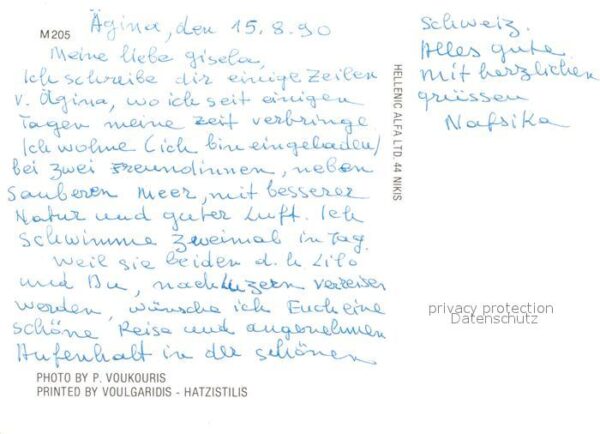 Ägina, den 15.8.90
M205
Meine liebe gisela,
Ich schreibe dir einige Zeilen
v. Ägina, wo ich seit einigen
Tagen meine zeit verbringe
Ich wohne (ich bin eingeladen)
bei zwei Freundinnen, neben
Sauberen Meer, mit besserer
Natur und guter Luft. Ich
schwimme zweimal in Tag.
Weil sie beiden d.h Lilo
und Du, nach Luzern verreisen
werden, wünsche ich Euch eine
schöne Reise und angenehmen
Aufenhalt in der schönen
schweiz.
Alles gute
mit herzlichen
grüssen
Nafsika
HELLENIC ALFA LTD. 44 NIKIS
privacy protection
Datenschutz
PHOTO BY P. VOUKOURIS
PRINTED BY VOULGARIDIS - HATZISTILIS